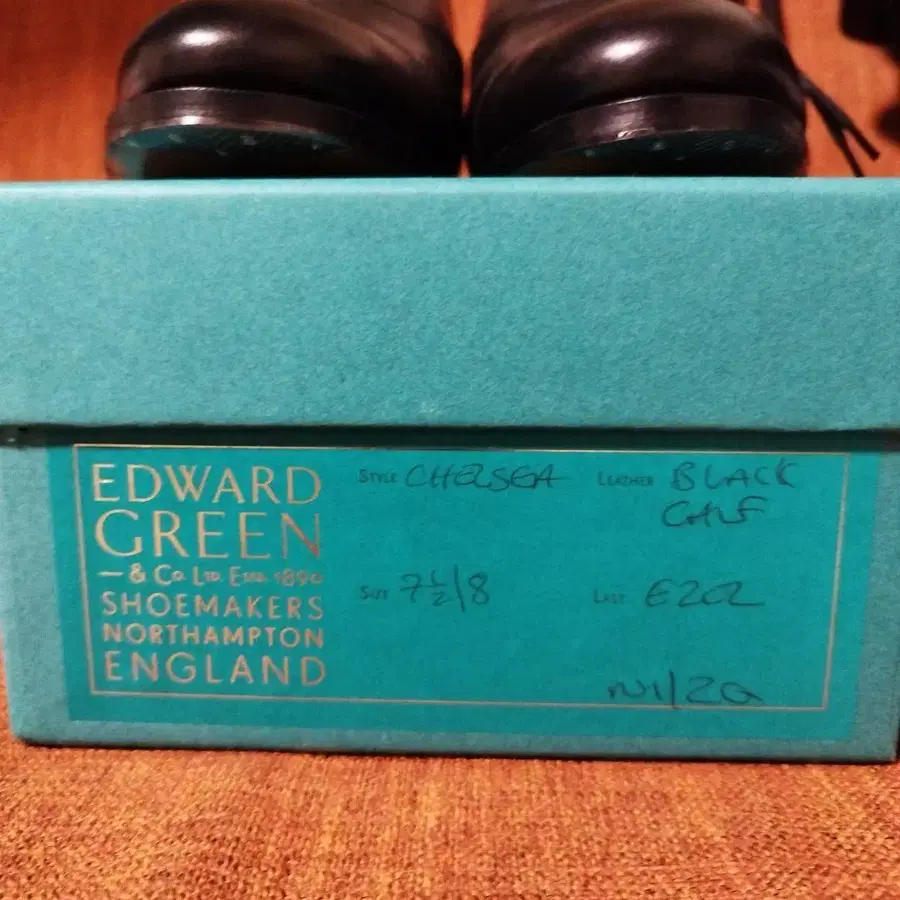 EDWARD
GREEN
— & Co. Ltd. Estd. 1890
SHOEMAKERS
NORTHAMPTON
ENGLAND
Style CHELSEA
Leather BLACK
CALF
Size 7½/8
Last E202